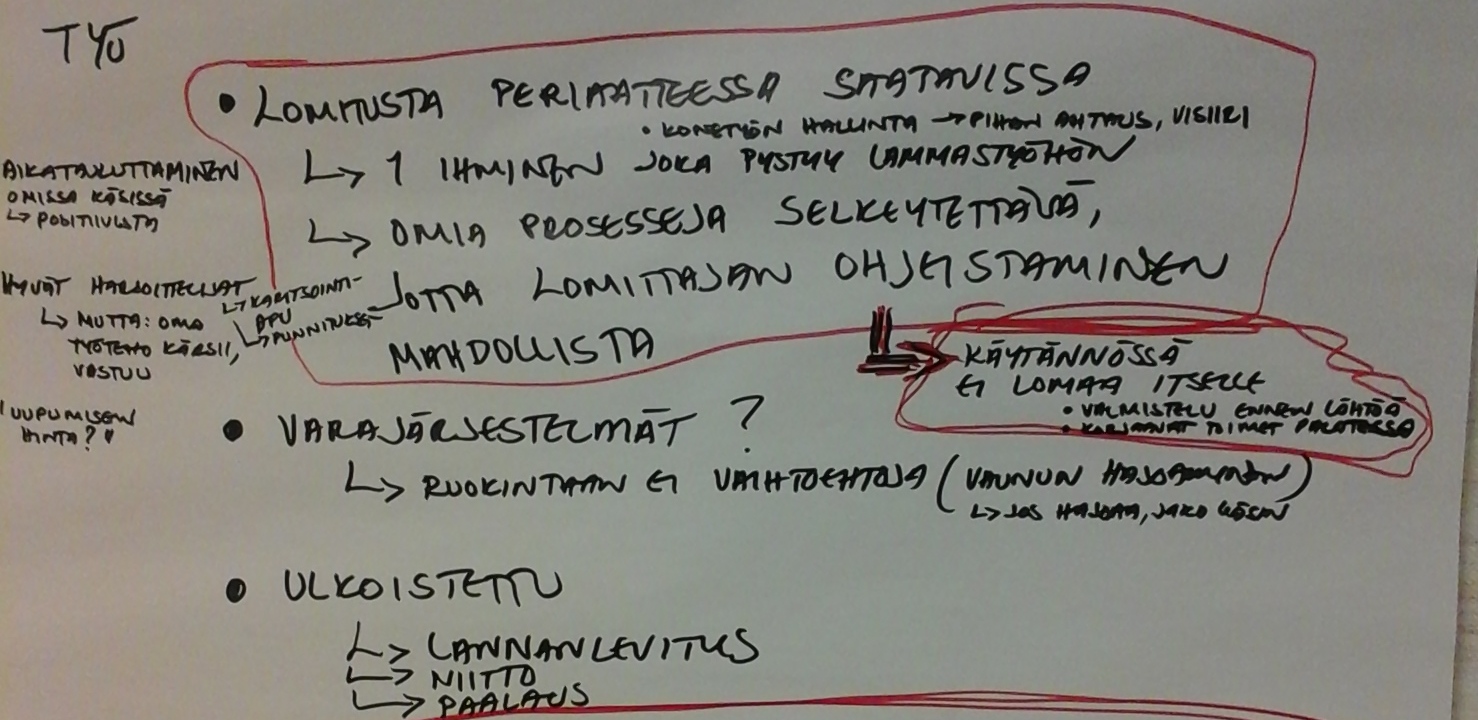 TYÖ
• LOMITUSTA PERIAATTEESSA SAATAVISSA
• KONETYÖN HALLINTA → PIHAN AHTAUS, VISIIRI
↳ 1 IHMINEN JOKA PYSTYY LAMMASTYÖHÖN
↳ OMIA PROSESSEJA SELKEYTETTÄVÄ,
JOTTA LOMITTAJAN OHJEISTAMINEN
MAHDOLLISTA
AIKATAULUTTAMINEN
OMISSA KÄSISSÄ
↳ POSITIIVISTA
HYVÄT HARJOITTELIJAT
↳ KARITSOINTI-
APU
↳ PUNNITUKSET
↳ MUTTA: OMA
TYÖTEHO KÄRSII,
VASTUU
"UUPUMISEN
HINTA?"
⇒ KÄYTÄNNÖSSÄ
EI LOMAA ITSELLE
• VALMISTELU ENNEN LÖHTÖÄ
• KORJAAVAT TOIMET PALATESSA
• VARAJÄRJESTELMÄT?
↳ RUOKINTAAN EI VAIHTOEHTOJA (VAUNUN HAJOAMINEN)
↳ JOS HAJOAA, JAKO KÄSIN
• ULKOISTETTU
↳ LANNANLEVITUS
↳ NIITTO
↳ PAALAUS